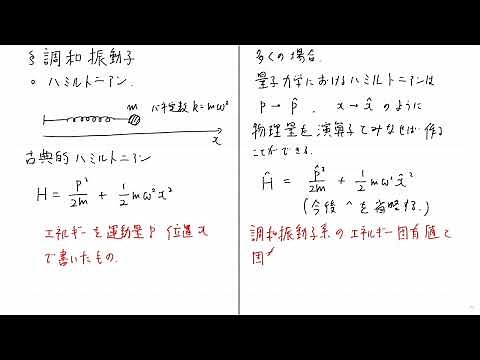 § 調和振動子
○ ハミルトニアン.
m バネ定数 k = mω²
x
古典的ハミルトニアン
H = p²/2m + 1/2 mω²x²
エネルギーを運動量 p 位置 x
で書いたもの.
多くの場合.
量子力学におけるハミルトニアンは
p → p̂ , x → x̂ のように
物理量を演算子でみなせば作る
ことができる.
Ĥ = p̂²/2m + 1/2 mω²x̂²
(今後 ^ を省略する.)
調和振動子系のエネルギー固有値と
固